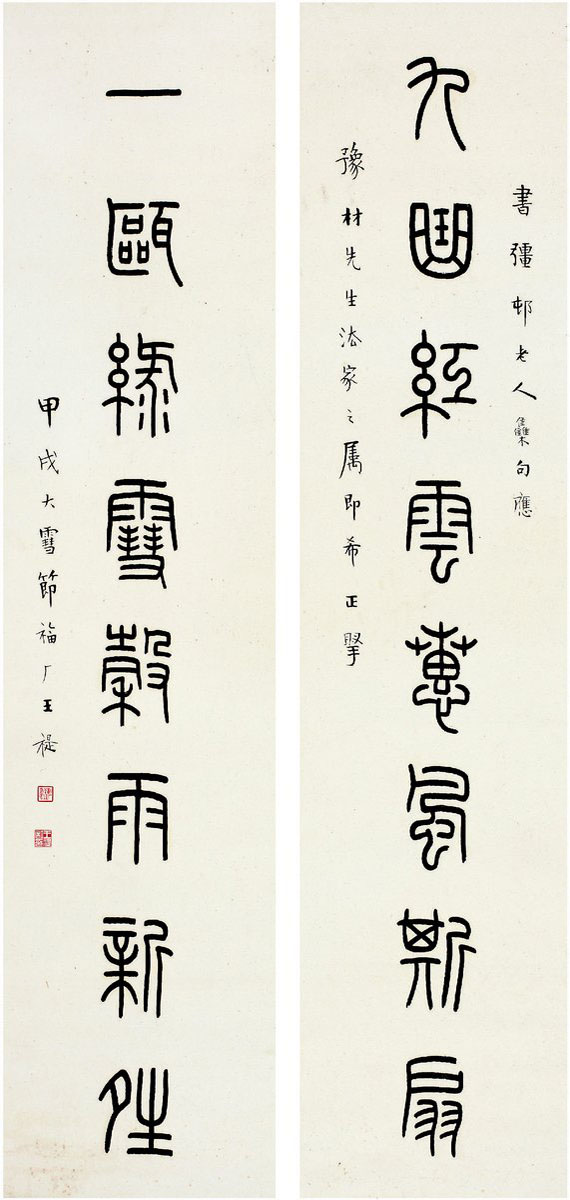 書彊邨老人雧句應
九曲紅雲蕙風斯扇
豫材先生法家之属即希正掔
一甌綠雪穀雨新夝
甲戌大雪節福厂王禔